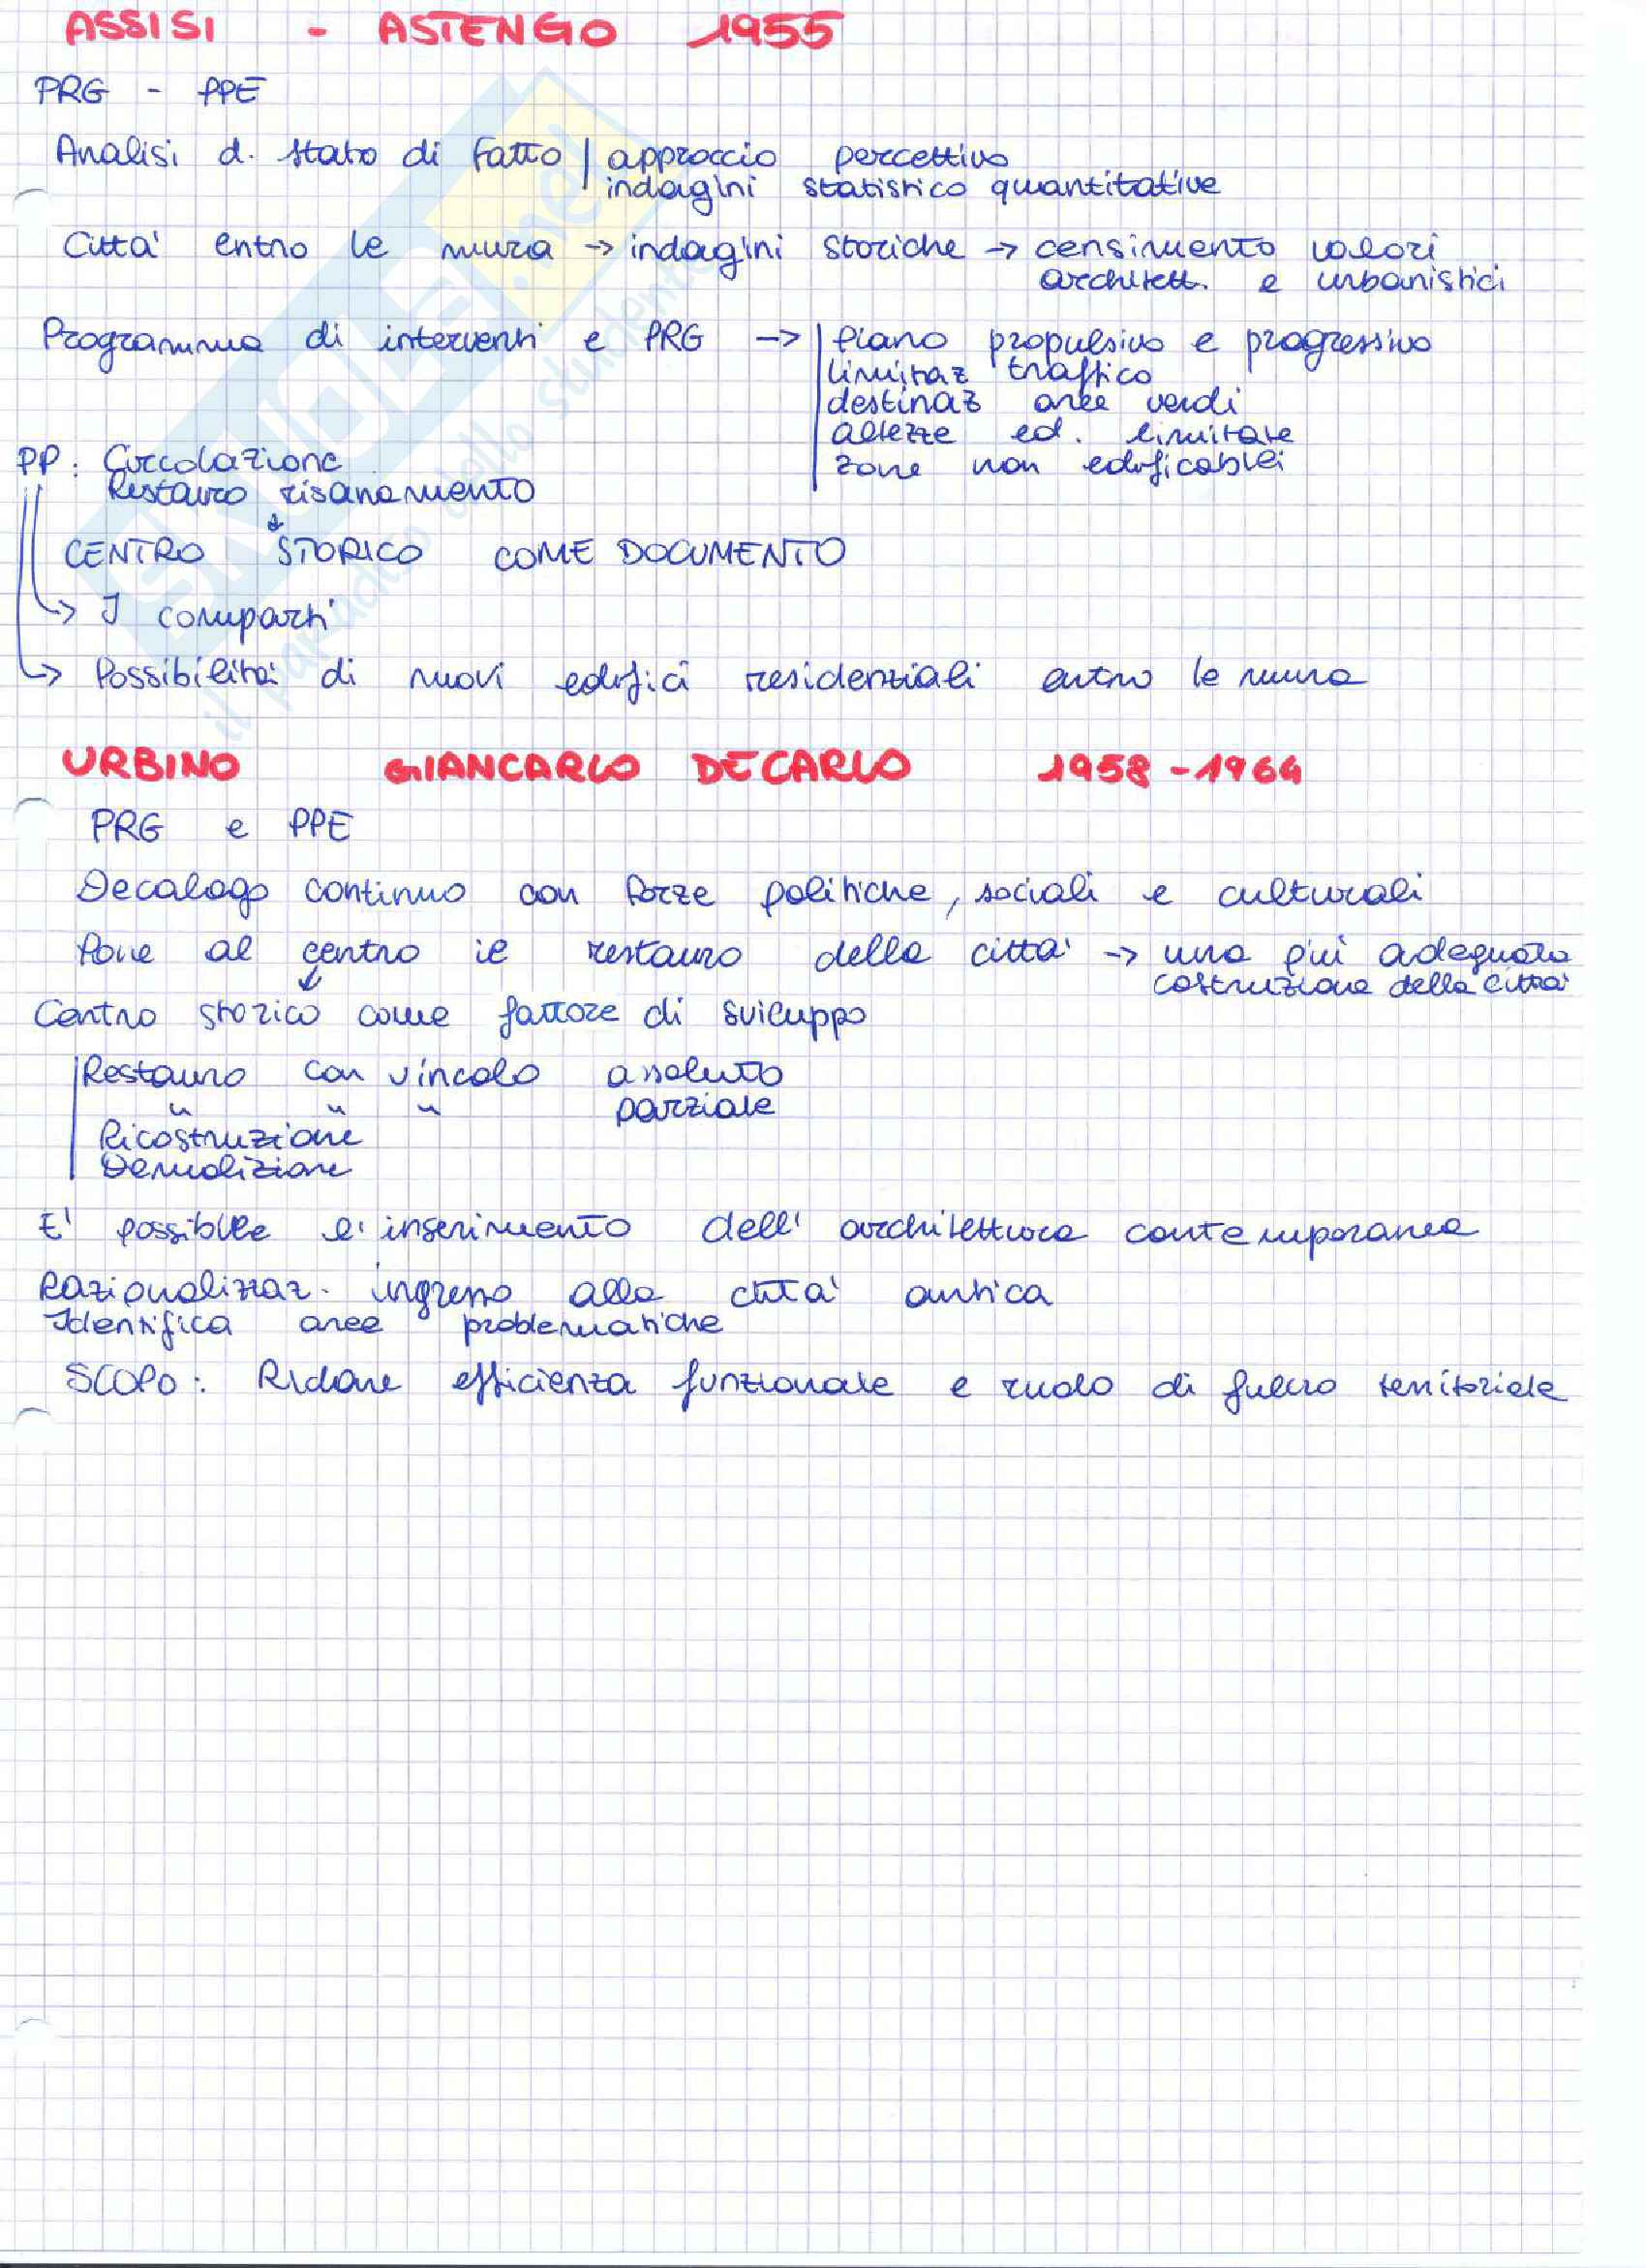 ASSISI - ASTENGO 1955
PRG - PPE
Analisi d. stato di fatto | approccio percettivo
indagini statistico quantitative
Città entro le mura → indagini storiche → censimento valori
architett. e urbanistici
Programma di interventi e PRG → | Piano propulsivo e progressivo
limitaz traffico
destinaz aree verdi
altezze ed. limitate
zone non edificabili
PP: Circolazione
Restauro risanamento
↓
CENTRO STORICO COME DOCUMENTO
→ I comparti
→ Possibilità di nuovi edifici residenziali entro le mura
URBINO GIANCARLO DE CARLO 1958-1964
PRG e PPE
Decalogo continuo con forze politiche, sociali e culturali
Pone al centro il restauro della città → una più adeguata
costruzione della città
↓
Centro storico come fattore di sviluppo
Restauro con vincolo assoluto
" " " parziale
Ricostruzione
Demolizione
E' possibile l'inserimento dell'architettura contemporanea
Razionalizzaz. ingresso alla città antica
Identifica aree problematiche
SCOPO: Ridare efficienza funzionale e ruolo di fulcro territoriale
SKUOLA.net
il paradiso dello studente